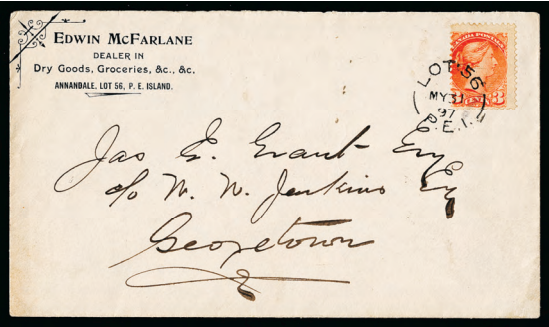 EDWIN MCFARLANE
DEALER IN
Dry Goods, Groceries, &c., &c,
ANNANDALE, LOT 56, P. E. ISLAND.
CANADA POSTAGE
3 CENTS 3
LOT 56
MY 31
97
P.E.I.
Jas E. Grant Esq
c/o W. W. Jenkins Esq
Georgetown